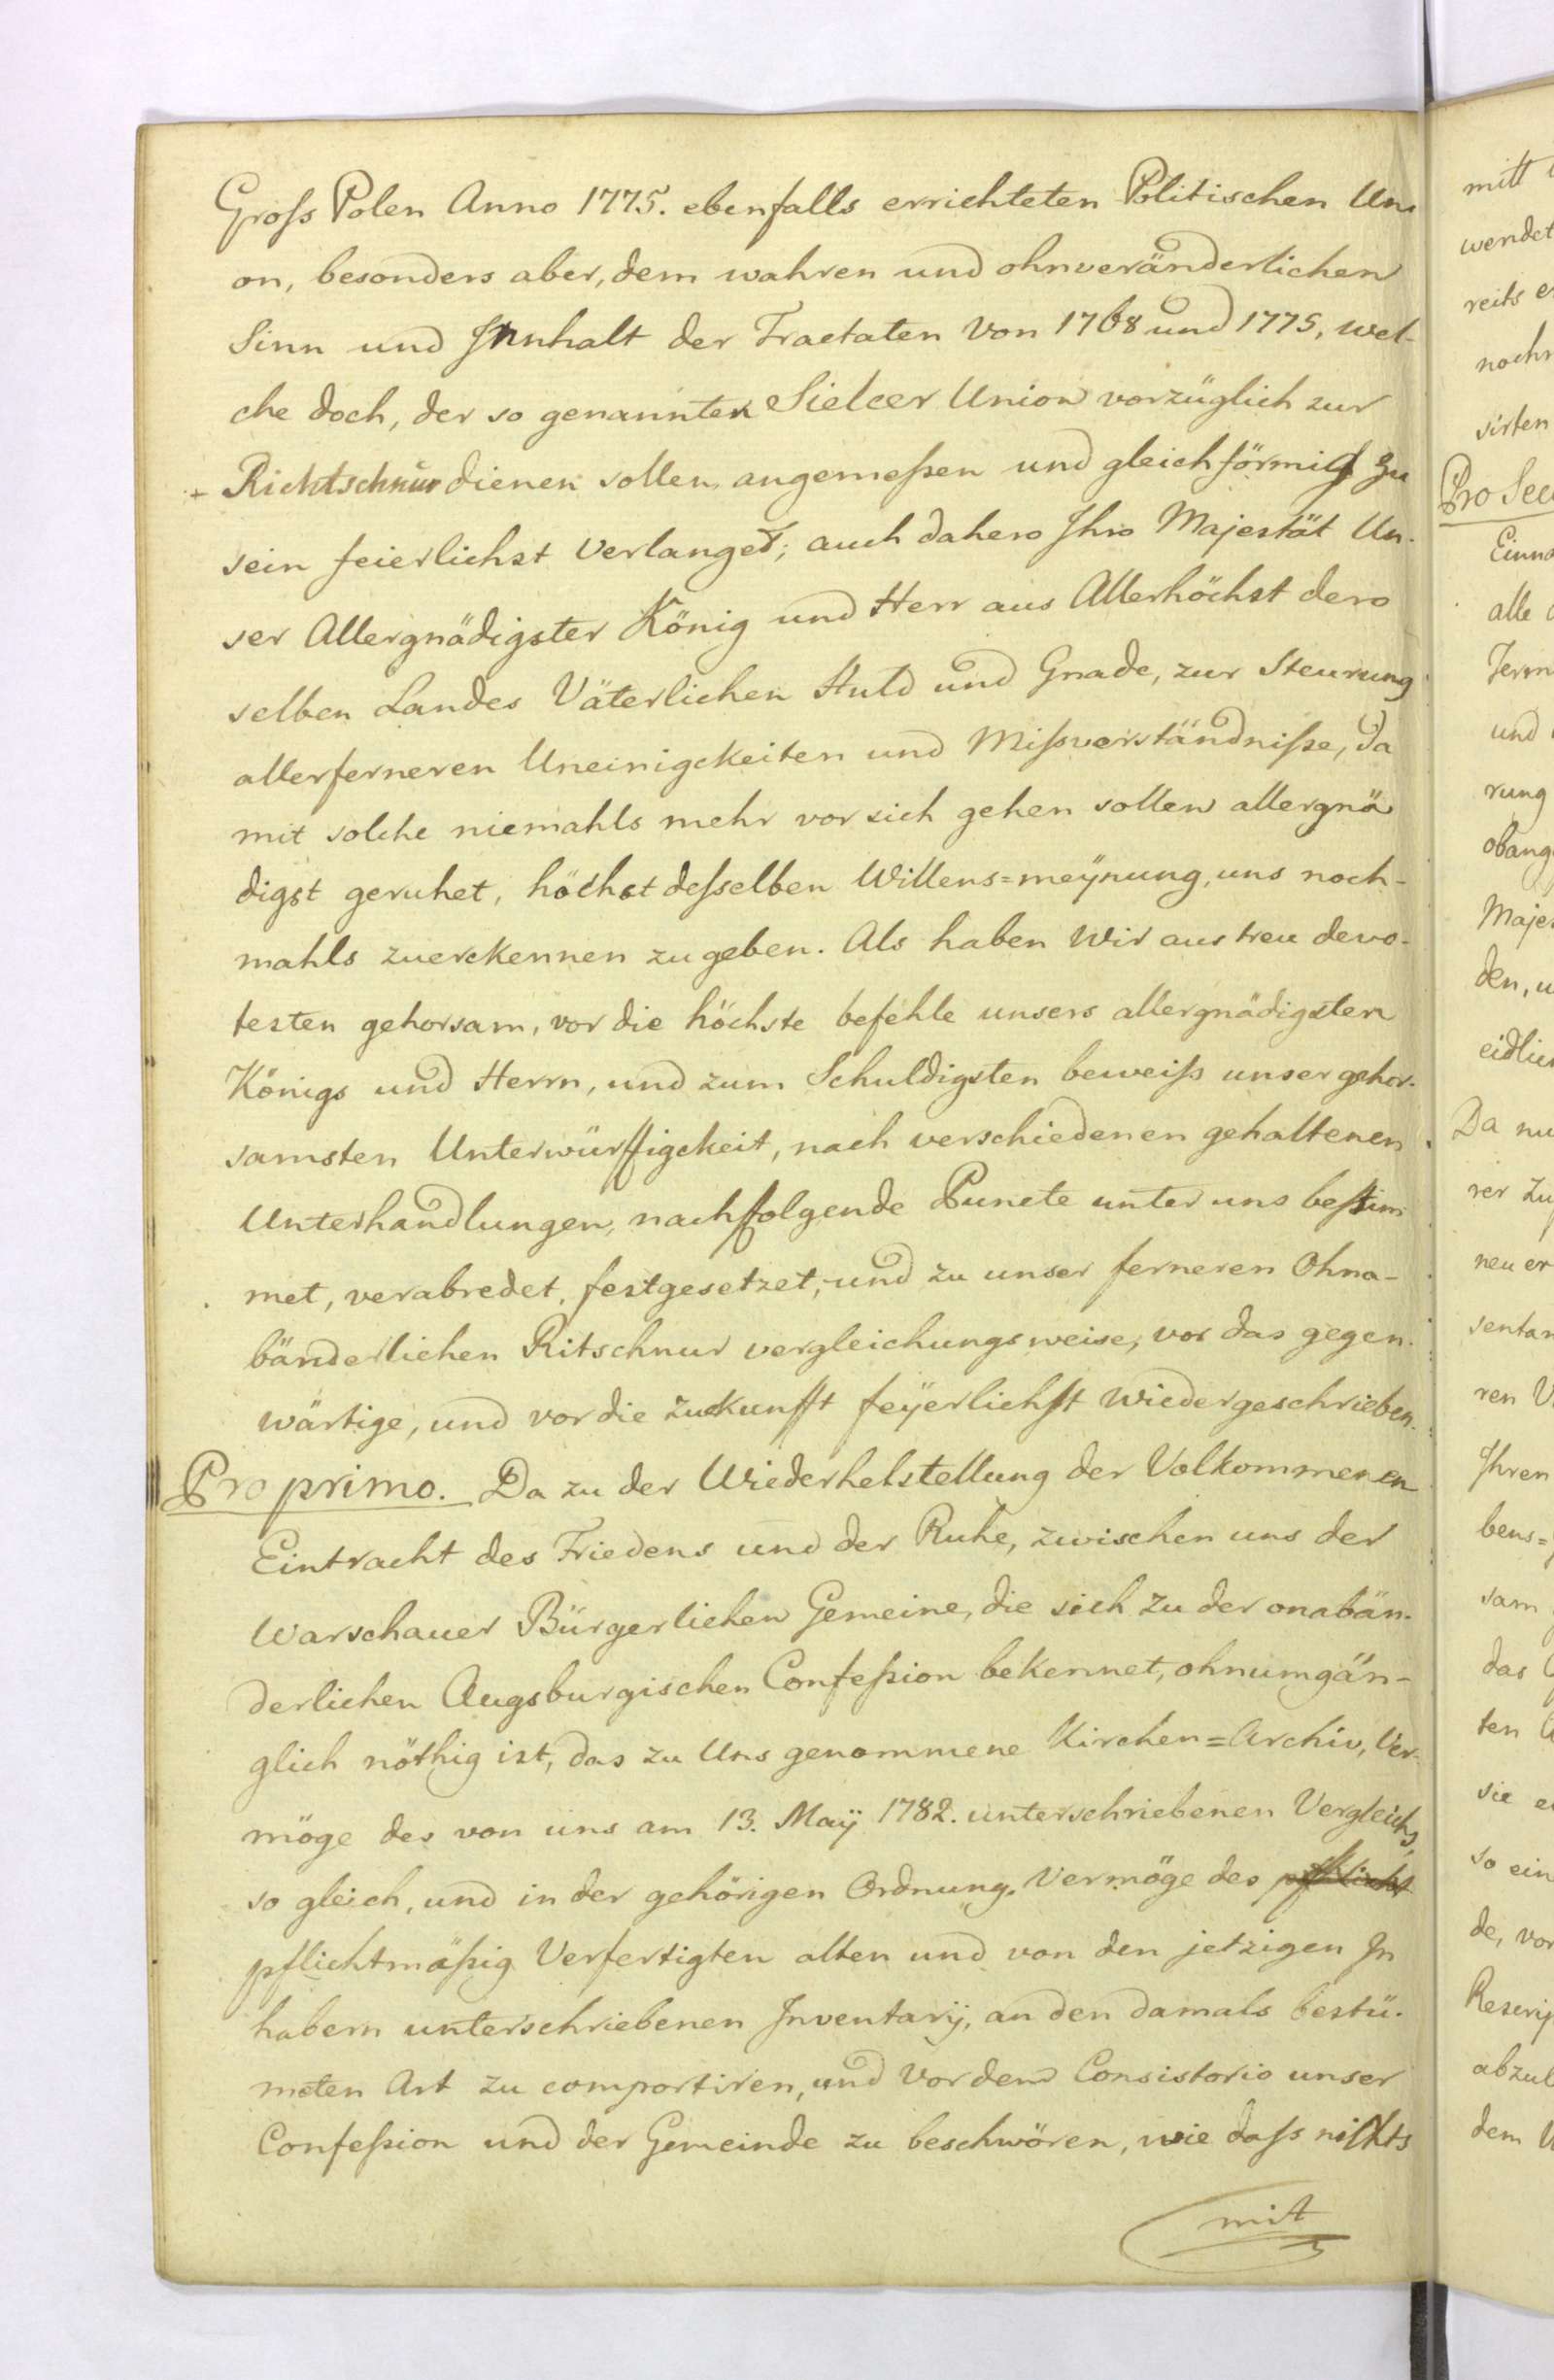 Groſs Polen Anno 1775. ebenfalls errichteten Politischen Uni
on, besonders aber, dem wahren und ohnveränderlichen
Sinn und Innhalt der Tractaten von 1768 und 1775, wel-
che doch, der so genannten Sielcer Union vorzüglich zur
+ Richtschnur dienen sollen angemeſsen und gleichförmig zu
sein feierlichst Verlanget; auch dahero Ihro Majestät Un-
ser Allergnädigster König und Herr aus Allerhöchst dero
selben Landes Väterlichen Huld und Gnade, zur Steurung
allerferneren Uneinigckeiten und Miſsverständniſse, da
mit solche niemahls mehr vor sich gehen sollen allergnä
digst geruhet, höchst deſselben Willens=meÿnung, uns noch-
mahls zuerckennen zu geben. Als haben Wir aus treu devo-
testen gehorsam, vor die höchste befehle unsers allergnädigsten
Königs und Herrn, und zum Schuldigsten beweiſs unser gehor-
samsten Unterwürffigckeit, nach verschiedenen gehaltenen
Unterhandlungen, nachfolgende Puncte unter uns bestim
met, verabredet, festgesetzet, und zu unser ferneren Ohna-
bänderlichen Ritschnur vergleichungsweise, vor das gegen-
wärtige, und vor die Zuckunfft feÿerlichst wiedergeschrieben.
Pro primo. Da zu der Wiederhelstellung der Volkommenen
Eintracht des Friedens und der Ruhe, zwischen uns der
Warschauer Bürgerlichen Gemeine, die sich zu der onabän-
derlichen Augsburgischen Confeſsion bekennet, ohnumgän-
glich nöthig ist, das zu Uns genommene Kirchen=Archiv, Ver-
möge des von uns am 13. Maÿ 1782. unterschriebenen Vergleichs,
so gleich, und in der gehörigen Ordnung. Vermöge des pflicht
pflichtmäſsig Verfertigten alten und von den jetzigen In
habern unterschriebenen Inventarij, an den damals bestü-
meten Art zu comportiren, und vor dem Consistorio unser
Confeſsion und der Gemeinde zu beschwören, wie daſs nichts
mit
mitt
wendet
reits
noch
sirten
Pro Sec
Einna
alle
Term
und
rung
obang
Majes
den, u
eidlich
Da nu
rer Zu
neu er
sentan
ren V
Ihren
bens=
sam
das
ten
sie
so ein
de, vor
Rescrip
abzul
dem